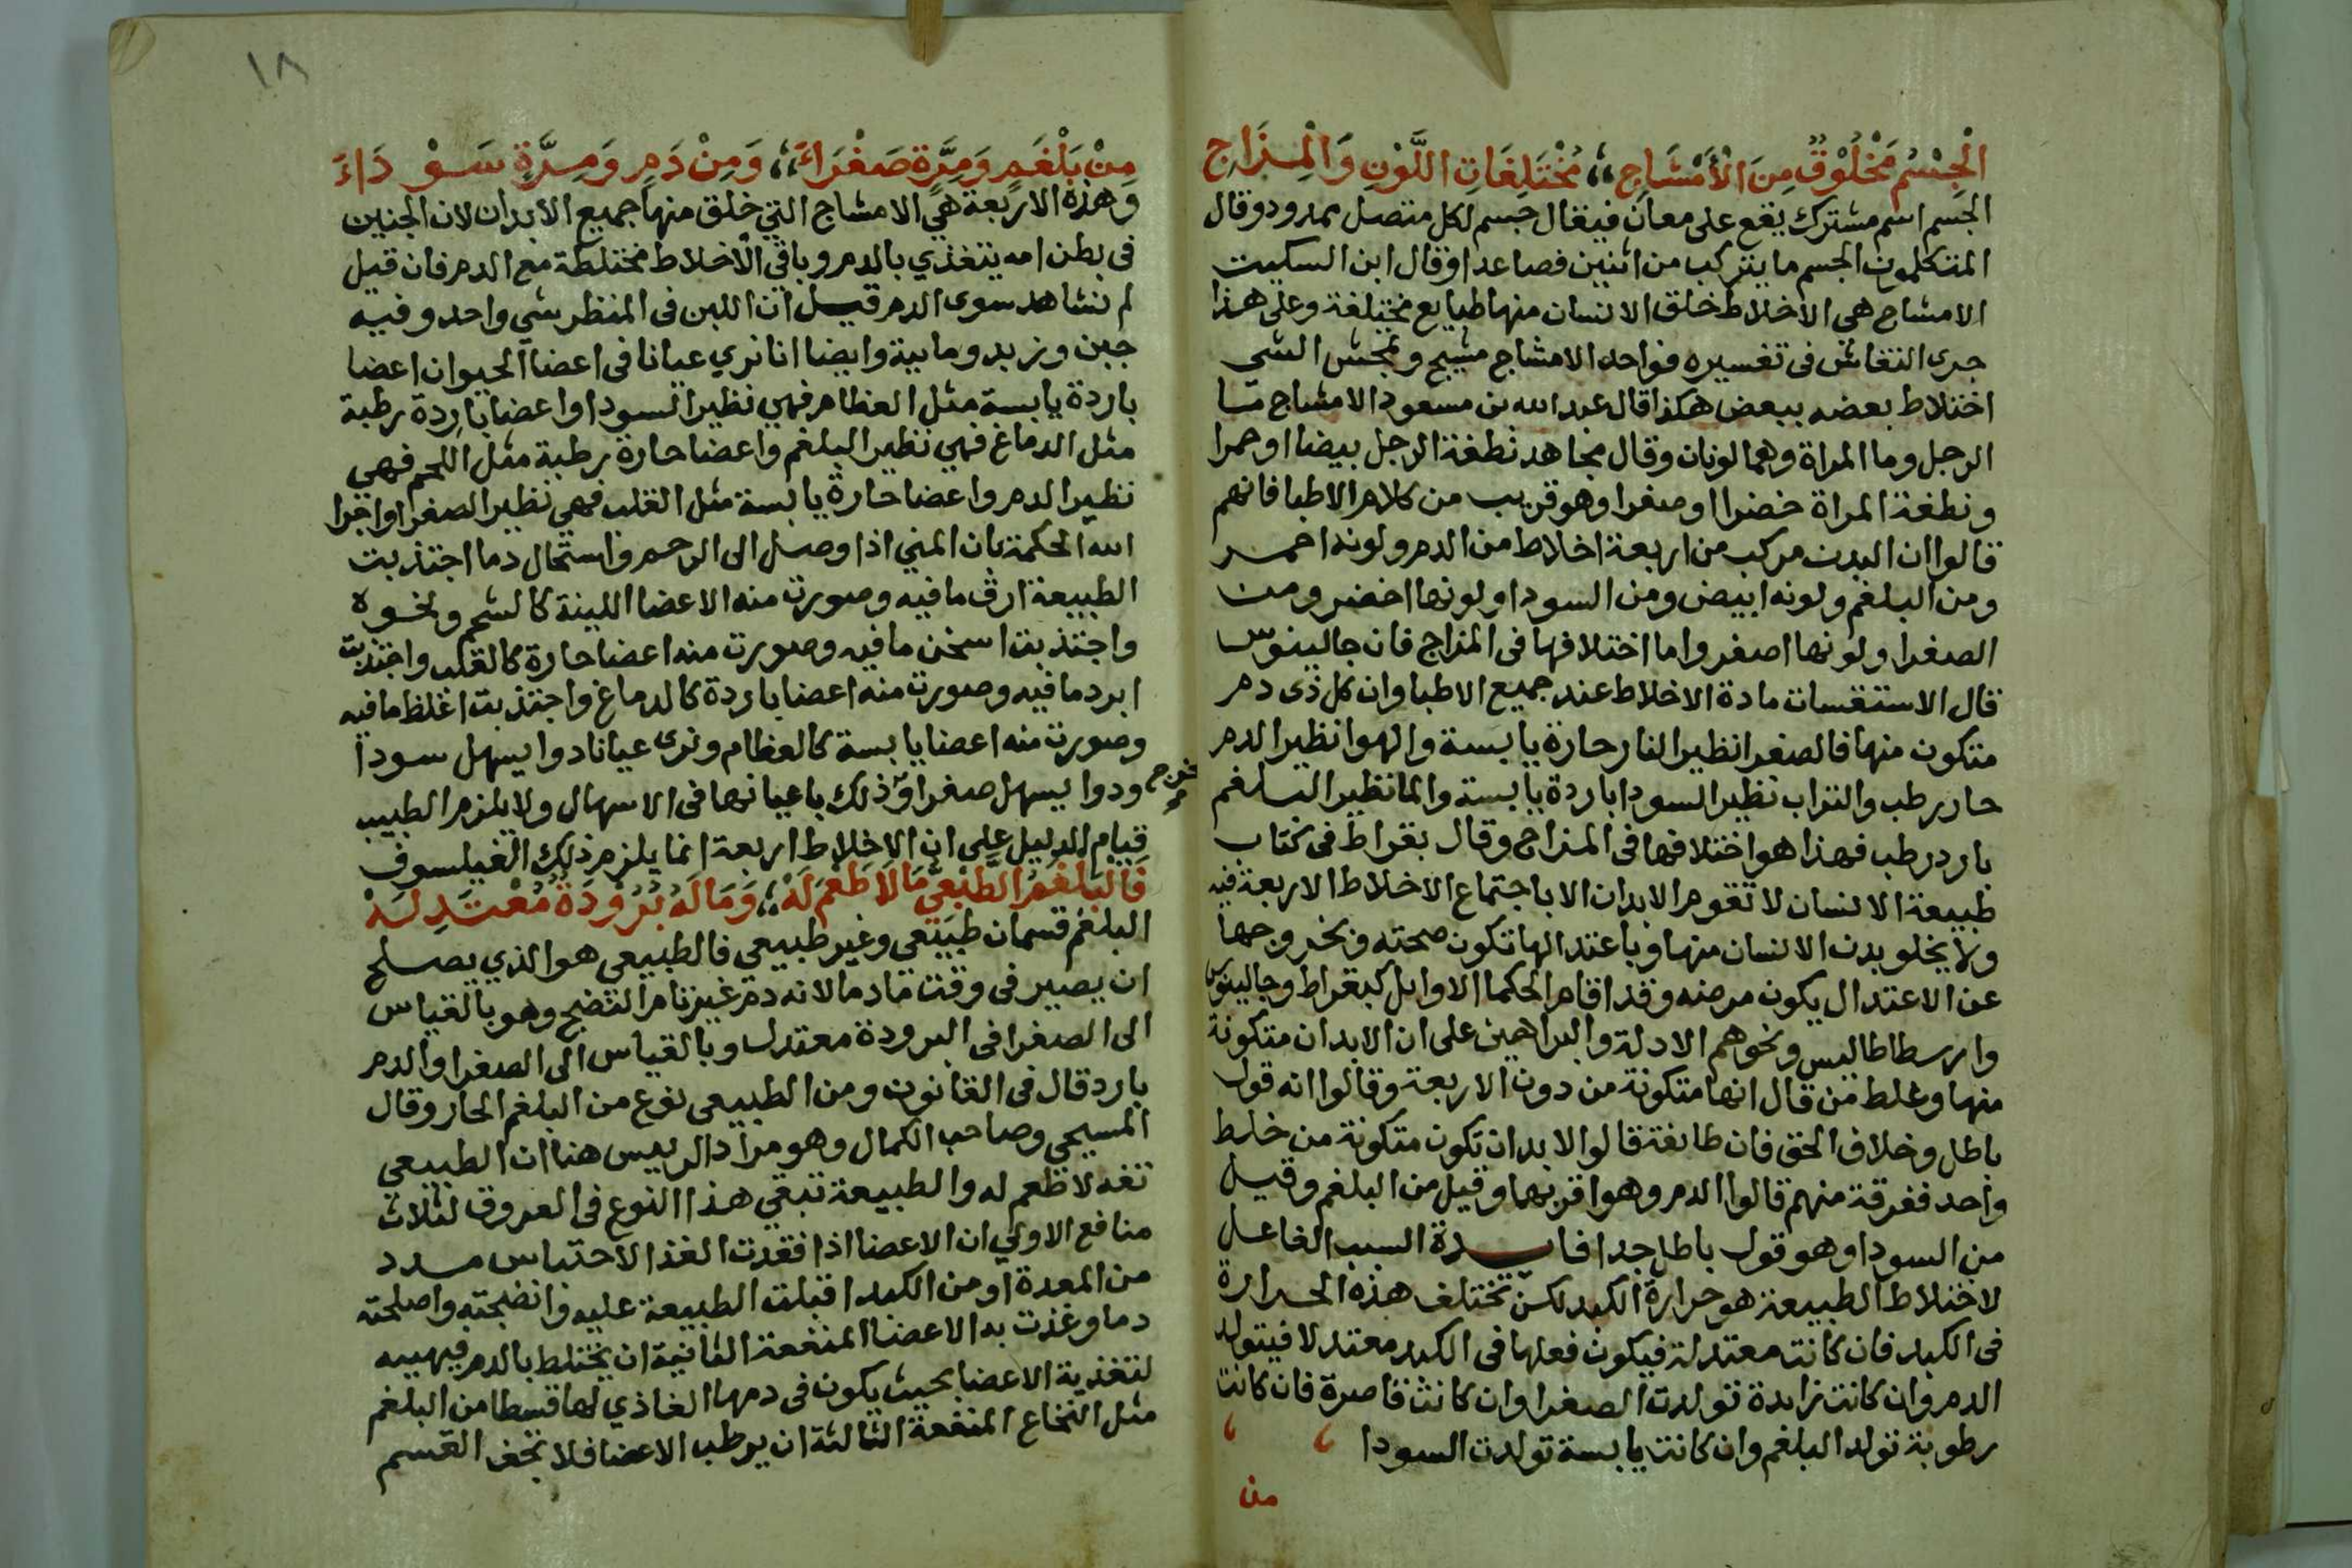 الْجِسْمُ مَخْلُوْقٌ مِنَ الْأَمْشَاجِ ،، مُخْتَلِفَاتِ اللَّوْنِ وَالْمِزَاجِ
الجسم اسم مشترك يقع على معان فيقال جسم لكل متصل ممدود وقال
المتكلمون الجسم ما يتركب من اثنين فصاعدا وقال ابن السكيت
الامشاج هي الاخلاط خلق الانسان منها طبايع مختلفة وعلى هذا
جرى النقاش فى تفسيره فواحد الامشاج مشيج و الشي
اختلاط بعضه ببعض هكذا قال عبد الله بن مسعود الامشاج ما
الرجل وما المراة وهما لونان وقال مجاهد نطفة الرجل بيضا او حمرا
ونطفة المراة خضرا او صفرا وهو قريب من كلام الاطبا فانهم
قالوا ان البدن مركب من اربعة اخلاط من الدم ولونه احمر
ومن البلغم ولونه ابيض ومن السودا ولونها اخضر ومن
الصفرا ولونها اصفر واما اختلافها فى المزاج فان جالينوس
قال الاستقسات مادة الاخلاط عند جميع الاطبا وان كل ذى دم
متكون منها فالصفرا نظير النار حارة يابسة والهوا نظير الدم
حار رطب والتراب نظير السودا باردة يابسة والما نظير البلغم
بارد رطب فهذا هو اختلافها فى المزاج وقال بقراط فى كتاب
طبيعة الانسان لا تقوم الابدان الا باجتماع الاخلاط الاربعة فيه
ولا يخلو بدن الانسان منها وباعتدالها تكون صحته وبخروجها
عن الاعتدال يكون مرضه وقد اقام الحكما الاوايل كبقراط وجالينوس
وارسطاطاليس ونحوهم الادلة والبراهين على ان الابدان متكونة
منها وغلط من قال انها متكونة من دون الاربعة وقالوا انه قول
باطل وخلاف الحق فان طائفة قالوا الابدان تكون متكونة من خلط
واحد ففرقة منهم قالوا الدم وهو اقربها وقيل من البلغم وقيل
من السودا وهو قول باطل جدا السبب الفاعل
لاختلاط الطبيعة هو حرارة الكبد لكن تختلف هذه الحرارة
فى الكبد فان كانت معتدلة فيكون فعلها فى الكبد معتدلا فيتولد
الدم وان كانت زايدة تولدت الصفرا وان كانت قاصرة فان كانت
رطوبة تولد البلغم وان كانت يابسة تولدت السودا
من
١٨
مِنْ بَلْغَمٍ وَمِرَّةٍ صَفْرَاءَ ،، وَمِنْ دَمٍ وَمِرَّةٍ سَوْدَاءَ
وهذه الاربعة هي الامشاج التي خلق منها جميع الابدان لان الجنين
فى بطن امه يتغذي بالدم وباقي الاخلاط مختلطة مع الدم فان قيل
لم نشاهد سوى الدم قيل ان اللبن فى المنظر شي واحد وفيه
جبن وزبد ومايية وايضا انا نري عيانا فى اعضا الحيوان اعضا
باردة يابسة مثل العظام فهي نظير السودا واعضا باردة رطبة
مثل الدماغ فهي نظير البلغم واعضا حارة رطبة مثل اللحم فهي
نظير الدم واعضا حارة يابسة مثل القلب فهي نظير الصفرا واجرا
الله الحكمة بان المني اذا وصل الى الرحم واستحال دما اجتذبت
الطبيعة ارق ما فيه وصورت منه الاعضا اللينة كالشحم ونحوه
واجتذبت اسخن ما فيه وصورت منه اعضا حارة كالقلب واجتذبت
ابرد ما فيه وصورت منه اعضا باردة كالدماغ واجتذبت اغلظ ما فيه
وصورت منه اعضا يابسة كالعظام ونرى عيانا دوا يسهل سودا
ودوا يسهل صفرا وذلك باعيانها فى الاسهال ولا يلزم الطبيب
قيام الدليل على ان الاخلاط اربعة انما يلزم ذلك الفيلسوف
فَالْبَلْغَمُ الطَّبْعِيُّ مَا لَا طَعْمَ لَهُ ،، وَمَا لَهُ بُرُوْدَةٌ مُعْتَدِلَهْ
البلغم قسمان طبيعي وغير طبيعي فالطبيعي هو الذي يصلح
ان يصير فى وقت ما دما لانه دم غير تام النضج وهو بالقياس
الى الصفرا فى البرودة معتدل وبالقياس الى الصفرا والدم
بارد قال فى القانون ومن الطبيعي نوع من البلغم الحار وقال
المسيحي وصاحب الكمال وهو مراد الرييس هنا ان الطبيعي
تفه لا طعم له والطبيعة تبقي هذا النوع فى العروق لثلاث
منافع الاولي ان الاعضا اذا فقدت الغذا لاحتباس مدد
من المعدة او من الكبد اقبلت الطبيعة عليه وانضجته واصلحته
دما وغذت به الاعضا المنفعة الثانية ان يختلط بالدم فيهييه
لتغذية الاعضا بحيث يكون فى دمها الغاذي لها قسطا من البلغم
مثل النخاع المنفعة الثالثة ان يرطب الاعضا فلا تجف القسم